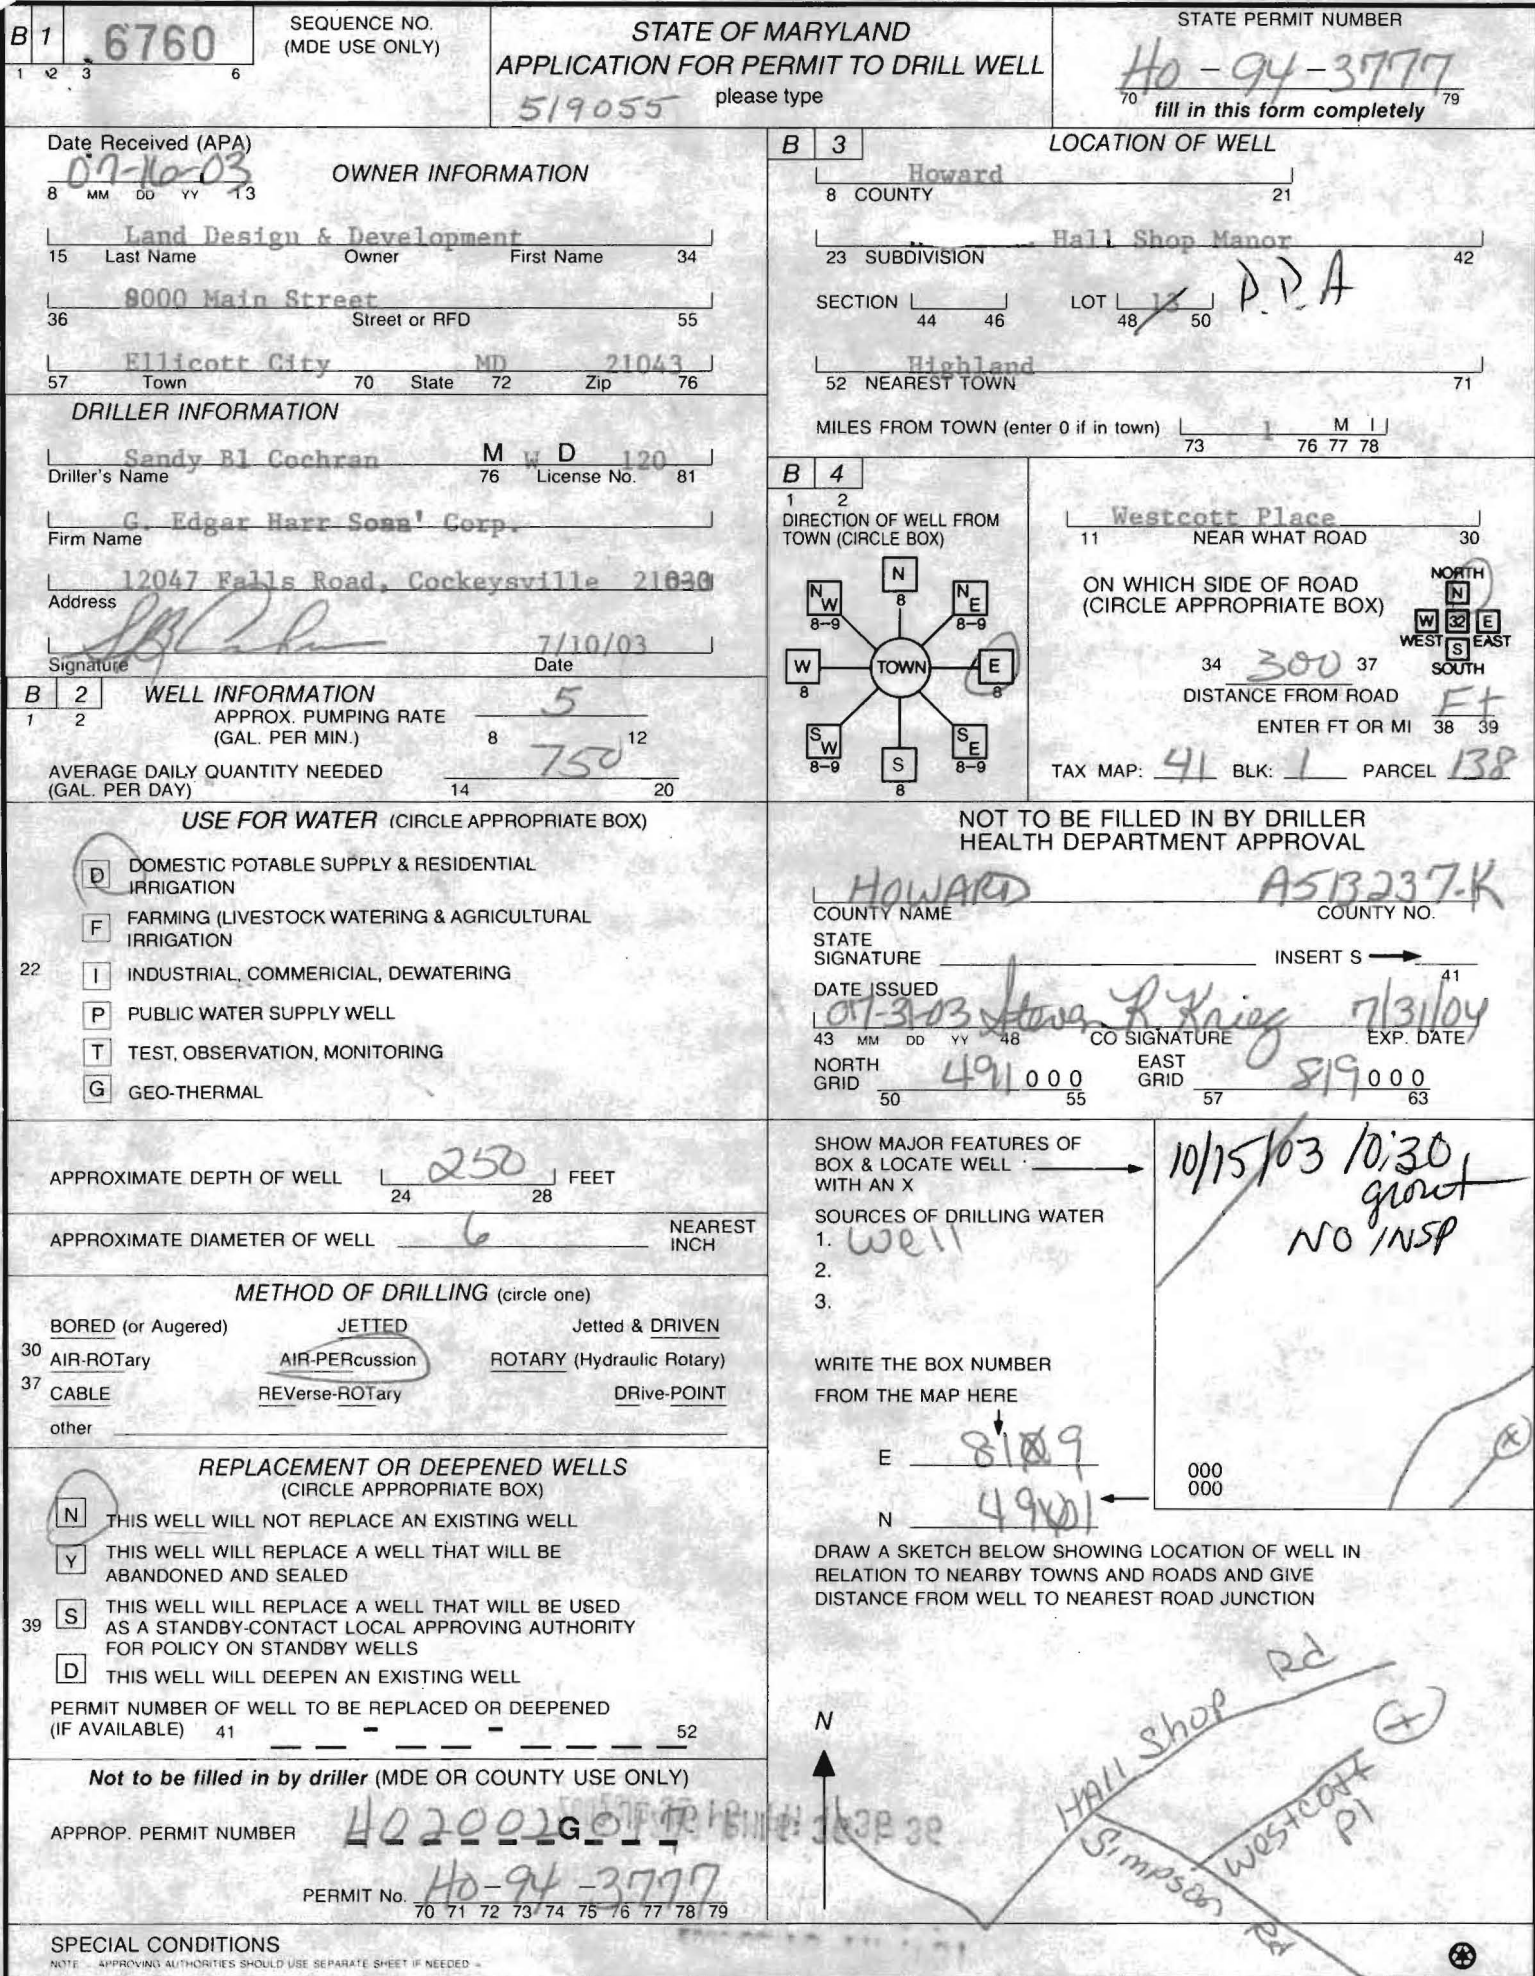 B 1
6760
1 2 3 6
SEQUENCE NO.
(MDE USE ONLY)
STATE OF MARYLAND
APPLICATION FOR PERMIT TO DRILL WELL
please type
519055
STATE PERMIT NUMBER
HO-94-3777
70 79
fill in this form completely
Date Received (APA)
07-16-03
8 MM DD YY 13
OWNER INFORMATION
Land Design & Development
15 Last Name Owner First Name 34
8000 Main Street
36 Street or RFD 55
Ellicott City MD 21043
57 Town 70 State 72 Zip 76
DRILLER INFORMATION
Sandy Bl Cochran M W D 120
Driller's Name 76 License No. 81
G. Edgar Harr Sons' Corp.
Firm Name
12047 Falls Road, Cockeysville 21030
Address
7/10/03
Signature Date
B 2
1 2
WELL INFORMATION
APPROX. PUMPING RATE
(GAL. PER MIN.) 8 5 12
AVERAGE DAILY QUANTITY NEEDED
(GAL. PER DAY) 14 750 20
USE FOR WATER (CIRCLE APPROPRIATE BOX)
22
D DOMESTIC POTABLE SUPPLY & RESIDENTIAL
IRRIGATION
F FARMING (LIVESTOCK WATERING & AGRICULTURAL
IRRIGATION
I INDUSTRIAL, COMMERICIAL, DEWATERING
P PUBLIC WATER SUPPLY WELL
T TEST, OBSERVATION, MONITORING
G GEO-THERMAL
APPROXIMATE DEPTH OF WELL 250 FEET
24 28
APPROXIMATE DIAMETER OF WELL 6 NEAREST
INCH
METHOD OF DRILLING (circle one)
BORED (or Augered) JETTED Jetted & DRIVEN
30 AIR-ROTary AIR-PERcussion ROTARY (Hydraulic Rotary)
37 CABLE REVerse-ROTary DRive-POINT
other
REPLACEMENT OR DEEPENED WELLS
(CIRCLE APPROPRIATE BOX)
N THIS WELL WILL NOT REPLACE AN EXISTING WELL
Y THIS WELL WILL REPLACE A WELL THAT WILL BE
ABANDONED AND SEALED
39 S THIS WELL WILL REPLACE A WELL THAT WILL BE USED
AS A STANDBY-CONTACT LOCAL APPROVING AUTHORITY
FOR POLICY ON STANDBY WELLS
D THIS WELL WILL DEEPEN AN EXISTING WELL
PERMIT NUMBER OF WELL TO BE REPLACED OR DEEPENED
(IF AVAILABLE) 41 - - 52
Not to be filled in by driller (MDE OR COUNTY USE ONLY)
APPROP. PERMIT NUMBER HO2002G017
PERMIT No. HO-94-3777
70 71 72 73 74 75 76 77 78 79
SPECIAL CONDITIONS
NOTE APPROVING AUTHORITIES SHOULD USE SEPARATE SHEET IF NEEDED
B 3
LOCATION OF WELL
Howard
8 COUNTY 21
Hall Shop Manor
23 SUBDIVISION 42
SECTION LOT 13 P.P.A
44 46 48 50
Highland
52 NEAREST TOWN 71
MILES FROM TOWN (enter 0 if in town) 1 M I
73 76 77 78
B 4
1 2
DIRECTION OF WELL FROM
TOWN (CIRCLE BOX)
N
8
NW NE
8-9 8-9
W TOWN E
8 8
SW SE
8-9 8-9
S
8
Westcott Place
11 NEAR WHAT ROAD 30
ON WHICH SIDE OF ROAD
(CIRCLE APPROPRIATE BOX)
NORTH
N
W 32 E
WEST EAST
S
SOUTH
34 300 37
DISTANCE FROM ROAD
ENTER FT OR MI Ft
38 39
TAX MAP: 41 BLK: 1 PARCEL 138
NOT TO BE FILLED IN BY DRILLER
HEALTH DEPARTMENT APPROVAL
HOWARD A513237-K
COUNTY NAME COUNTY NO.
STATE
SIGNATURE INSERT S
41
DATE ISSUED
07-31-03 Steven R Krieg 7/31/04
43 MM DD YY 48 CO SIGNATURE EXP. DATE
NORTH
GRID 491 000
50 55
EAST
GRID 819 000
57 63
SHOW MAJOR FEATURES OF
BOX & LOCATE WELL
WITH AN X
SOURCES OF DRILLING WATER
1. Well
2.
3.
10/15/03 10:30
grout
NO INSP
WRITE THE BOX NUMBER
FROM THE MAP HERE
E 819
N 491
000
000
DRAW A SKETCH BELOW SHOWING LOCATION OF WELL IN
RELATION TO NEARBY TOWNS AND ROADS AND GIVE
DISTANCE FROM WELL TO NEAREST ROAD JUNCTION
N
HAll Shop Rd
Simpson Rd
Westcott Pl